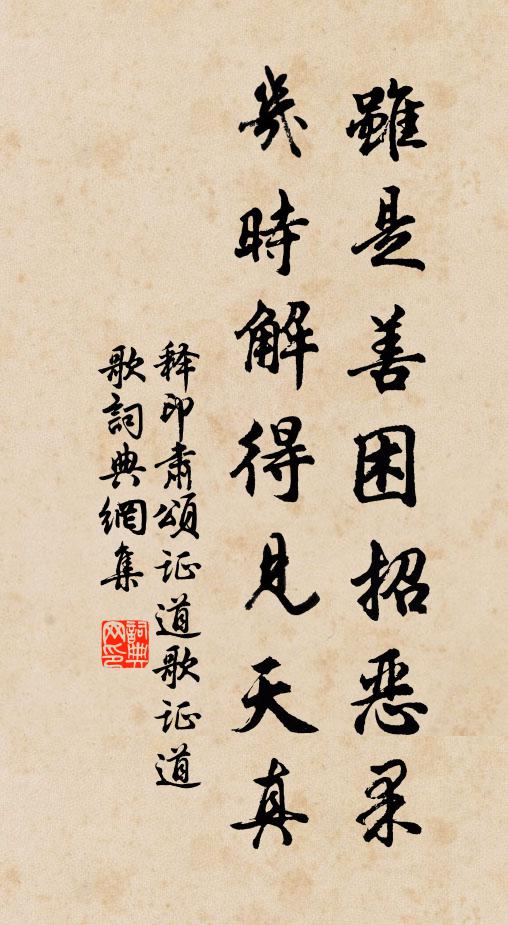 雖是善困招惡果
幾時解得見天真
释印肃頌证道歌证道
歌詞典網集
詞典
网印